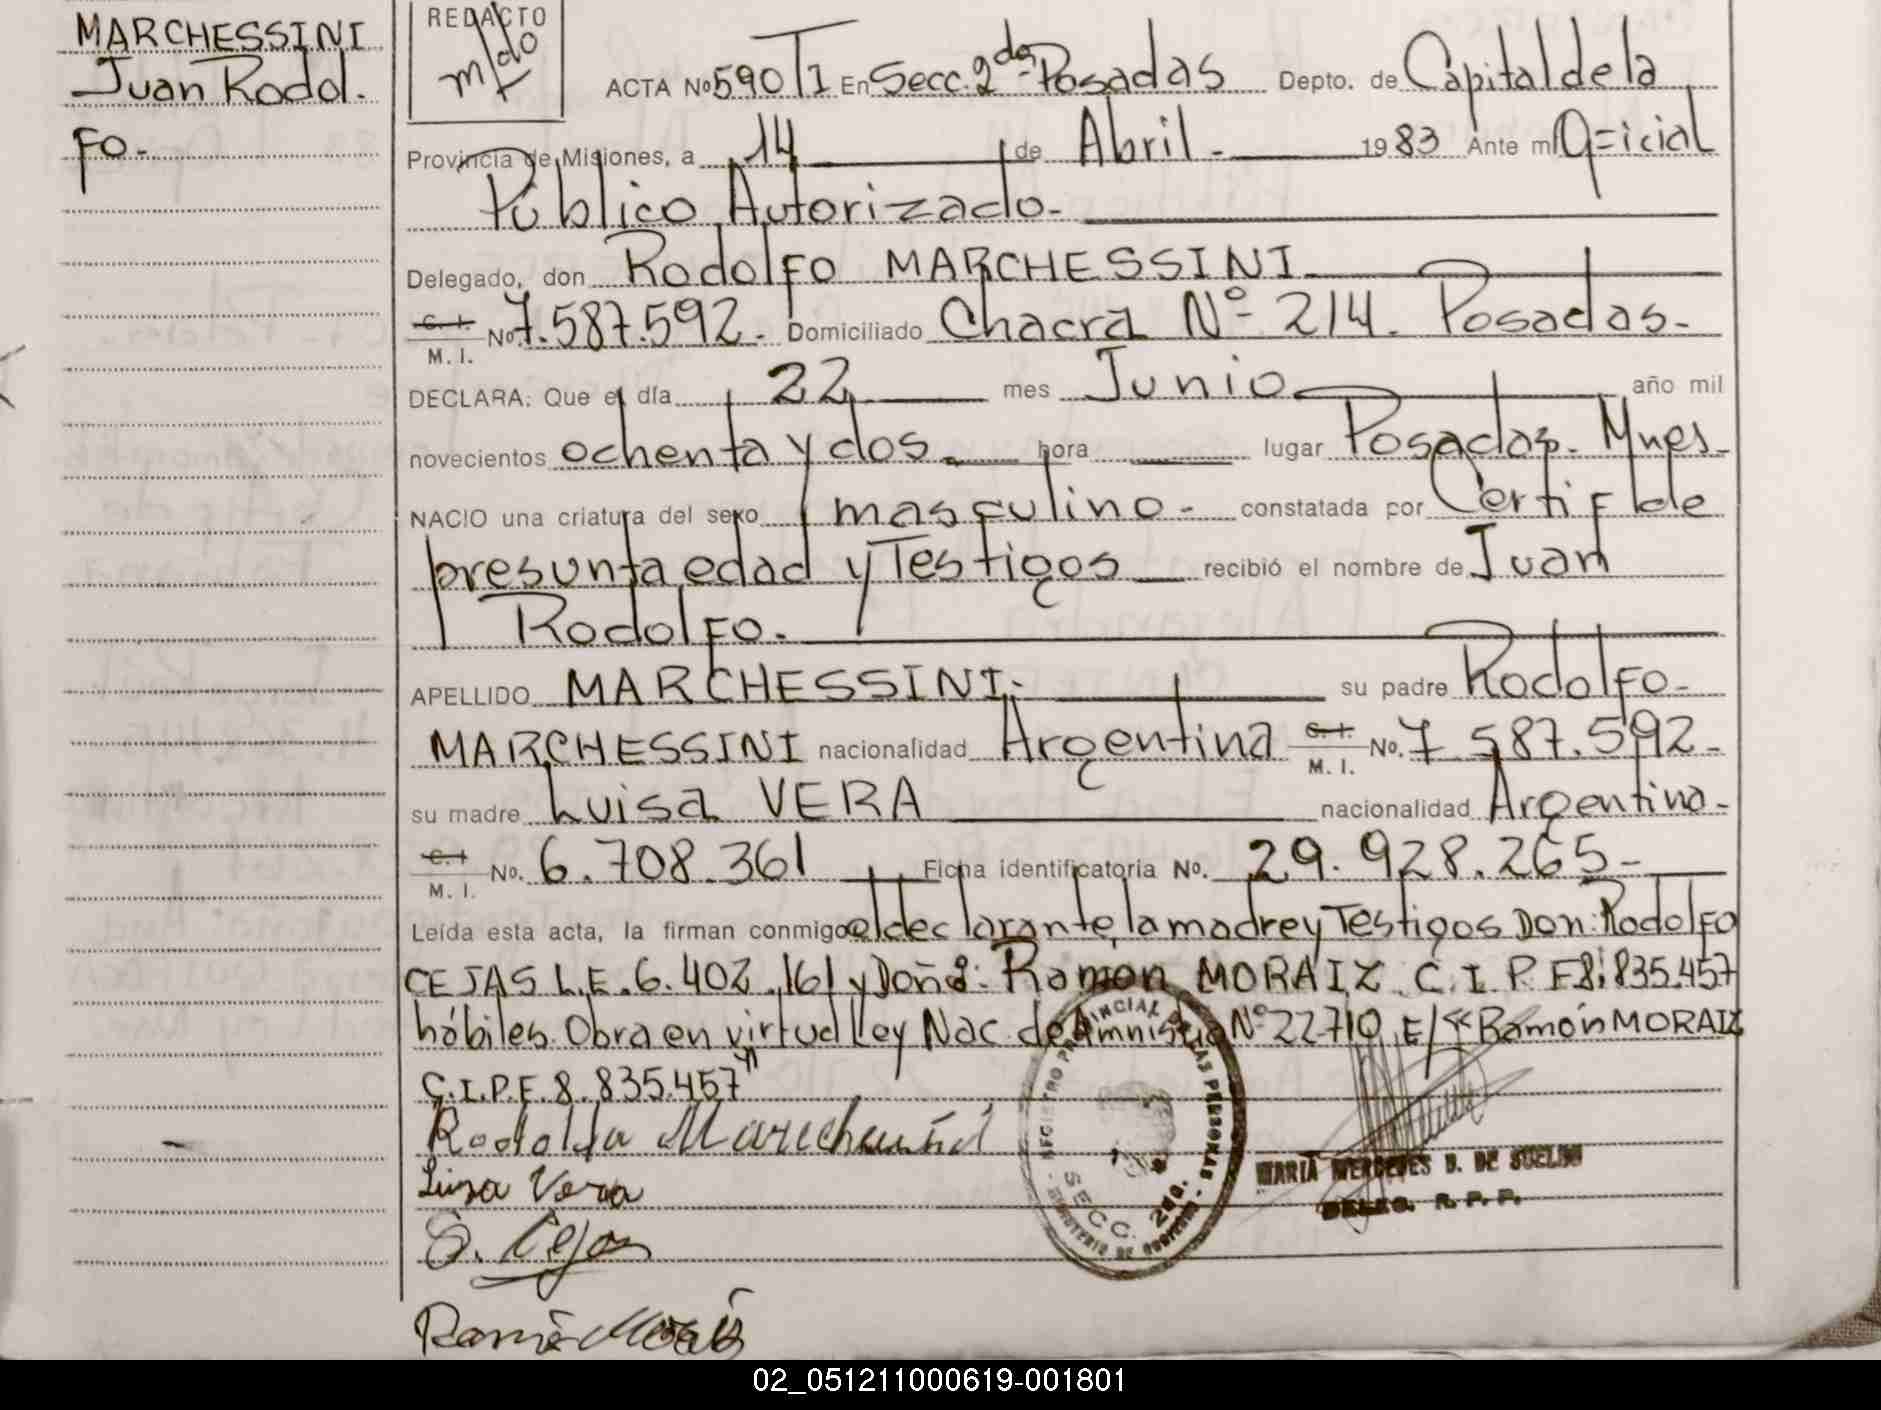 MARCHESSINI
Juan Rodol.
fo.
REDACTO
ACTA Nº 590 TI En Secc. 2da - Posadas Depto. de Capital de la
Provincia de Misiones, a 14 de Abril - 1983 Ante mi Oficial
Público Autorizado-
Delegado, don Rodolfo MARCHESSINI
C. I. M. I. No. 7.587.592. Domiciliado Chacra Nº 214. Posadas-
DECLARA: Que el día 22 mes Junio año mil
novecientos ochenta y dos - hora lugar Posadas. Mnes-
NACIO una criatura del sexo masculino - constatada por Certif de
presunta edad y Testigos recibió el nombre de Juan
Rodolfo.
APELLIDO MARCHESSINI- su padre Rodolfo-
MARCHESSINI nacionalidad Argentina C. I. M. I. No. 7.587.592-
su madre Luisa VERA nacionalidad Argentina-
C. I. M. I. No. 6.708.361 Ficha identificatoria No. 29.928.265-
Leída esta acta, la firman conmigo el declarante, la madre y Testigos Don: Rodolfo
CEJAS L.E. 6.402.161 y Doña: Ramon MORAIZ C.I.P.F 8.835.457
hábiles. Obra en virtud Ley Nac. de Amnistia Nº 22710 E/ "Ramón MORAIZ
C.I.P.F. 8.835.457"
Luisa Vera
Cejas
REGISTRO PROVINCIAL DE LAS PERSONAS
SECC. 2DA.
MINISTERIO DE GOBIERNO
MARIA MERCEDES D. DE SUELDO
DELEG. R. P. P.
02_051211000619-001801